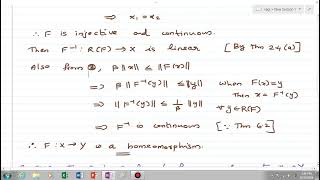 ⇒ x₁ = x₂
∴ F is injective and continuous.
Then F⁻¹ : R(F) → X is linear [By Thm 2.4(a)]
Also from ②, β ||x|| ≤ ||F(x)||
⇒ β ||F⁻¹(y)|| ≤ ||y|| when F(x)=y
then x = F⁻¹(y)
⇒ ||F⁻¹(y)|| ≤ 1/β ||y|| ∀ y∈R(F)
⇒ F⁻¹ is continuous [∵ Thm 6.2]
∴ F : X → Y is a homeomorphism.